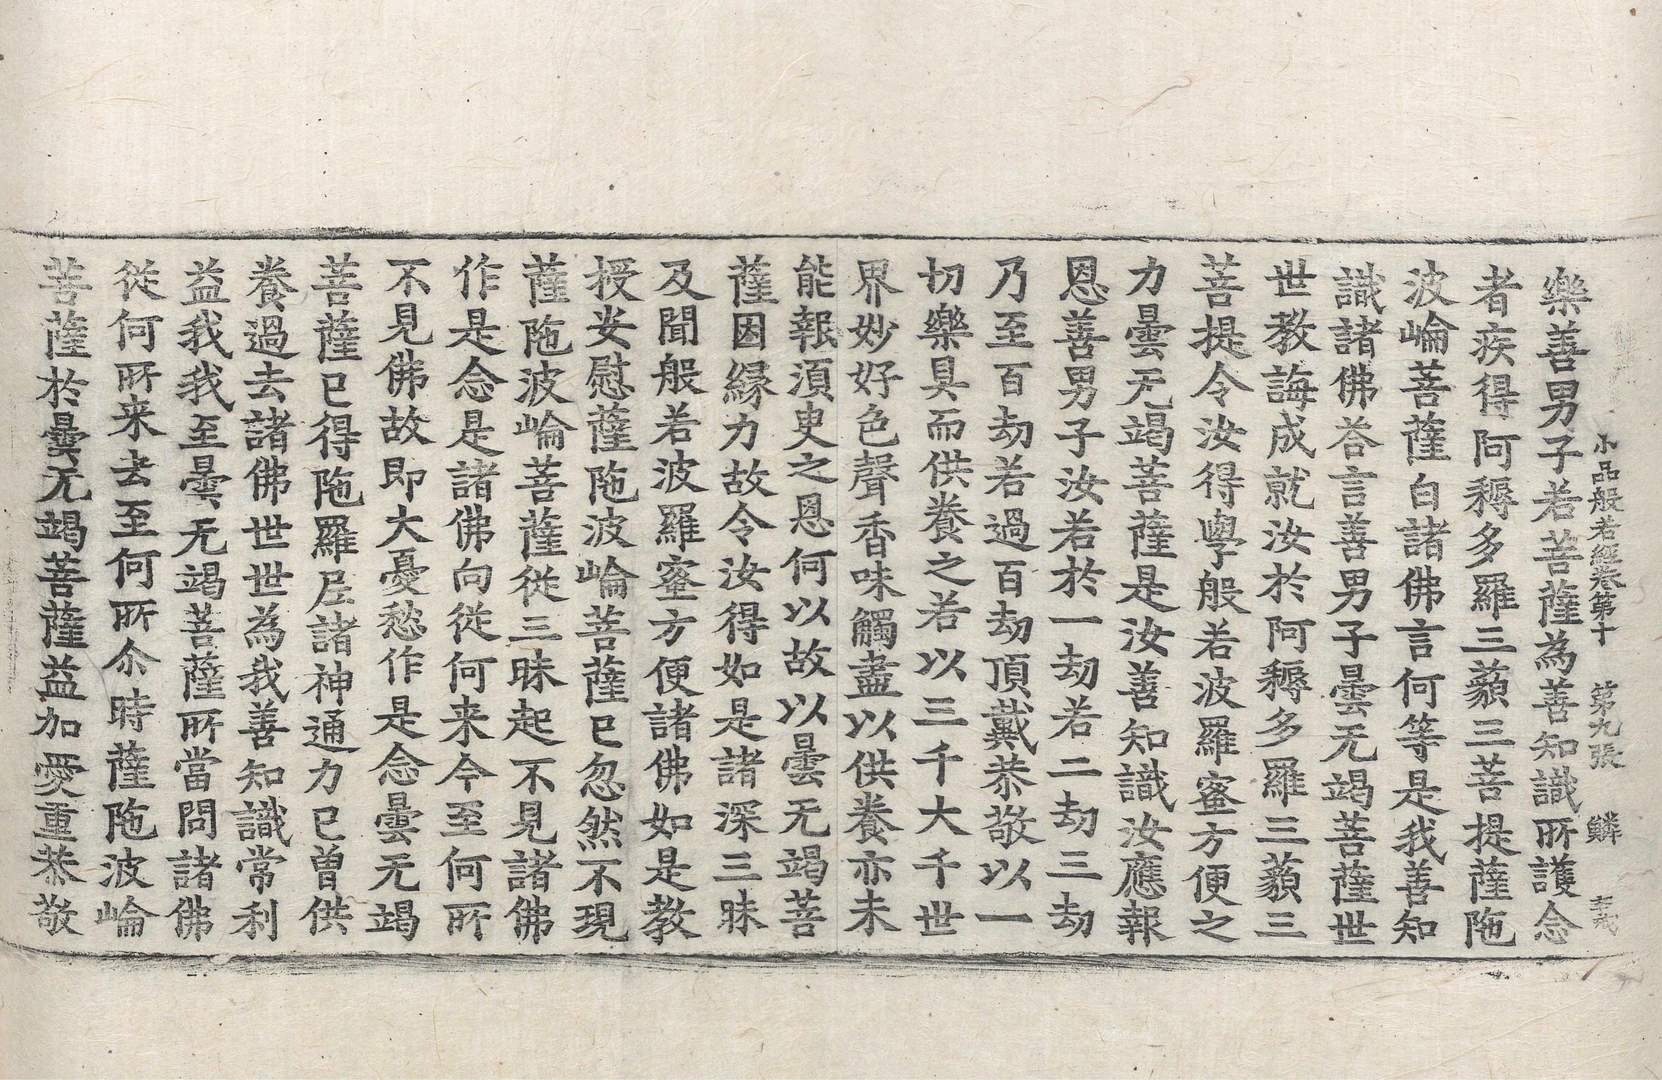 小品般若經卷第十 第九張 鱗
樂善男子若菩薩為善知識所護念
者疾得阿耨多羅三藐三菩提薩陁
波崘菩薩白諸佛言何等是我善知
識諸佛荅言善男子曇无竭菩薩世
世教誨成就汝於阿耨多羅三藐三
菩提令汝得學般若波羅蜜方便之
力曇无竭菩薩是汝善知識汝應報
恩善男子汝若於一劫若二劫三劫
乃至百劫若過百劫頂戴恭敬以一
切樂具而供養之若以三千大千世
界妙好色聲香味觸盡以供養亦未
能報須臾之恩何以故以曇无竭菩
薩因緣力故令汝得如是諸深三昧
及聞般若波羅蜜方便諸佛如是教
授安慰薩陁波崘菩薩已忽然不現
薩陁波崘菩薩從三昧起不見諸佛
作是念是諸佛向從何来今至何所
不見佛故即大憂愁作是念曇无竭
菩薩已得陁羅尼諸神通力已曾供
養過去諸佛世世為我善知識常利
益我我至曇无竭菩薩所當問諸佛
從何所来去至何所尒時薩陁波崘
菩薩於曇无竭菩薩益加愛重恭敬